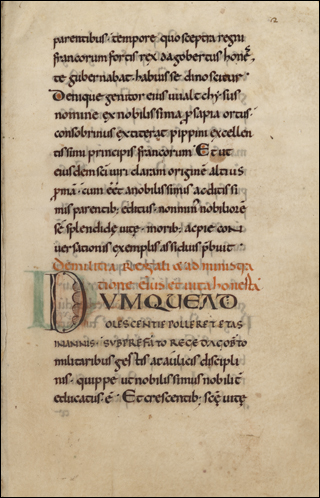 2
parentibus · tempore · quo sceptra regni
francorum fortis rex dagobertus hones
te gubernabat · habuisse dinoscitur ·
Denique genitor eius uualtchysus
nomine ex nobilissima p̄sapia ortus ·
consobrinus extiterat pippini excellen
tissimi principis francorum · Et ut
eiusdem sc̄i uiri claram originē altius
p̄mā · cum eēt a nobilissimis ac ditissi
mis parentib; editus · non min nobiliorē
sē splendide uitę · morib; ac pie con
uersationis exemplis assiduis p̄buit
De militia regali et administra
tione eius et uita honesta
DUMQUE AD
OLESCENTIE POLLERET ETAS
IN ANNIS · SUB PREFATO REGE DAGOB̄TO
militaribus gestis ac aulicis discipli
nis · quippe ut nobilissimus nobilit̄
educatus ē · Et crescentib; sc̄ę uitę